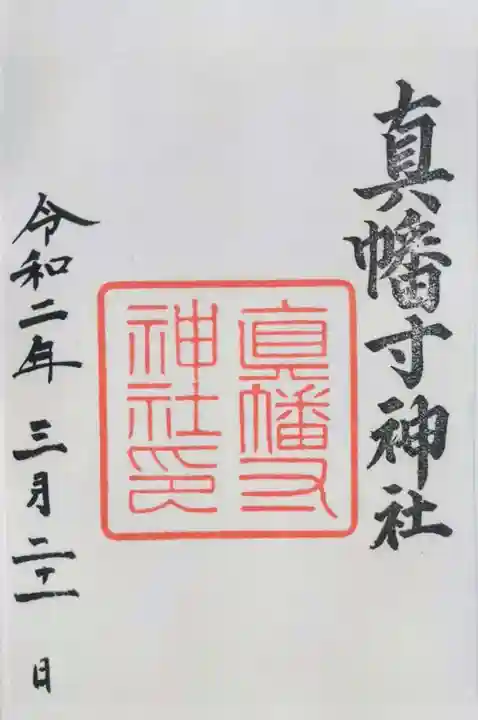 真幡寸神社
真幡寸
神社印
令和二年 三月二十一日